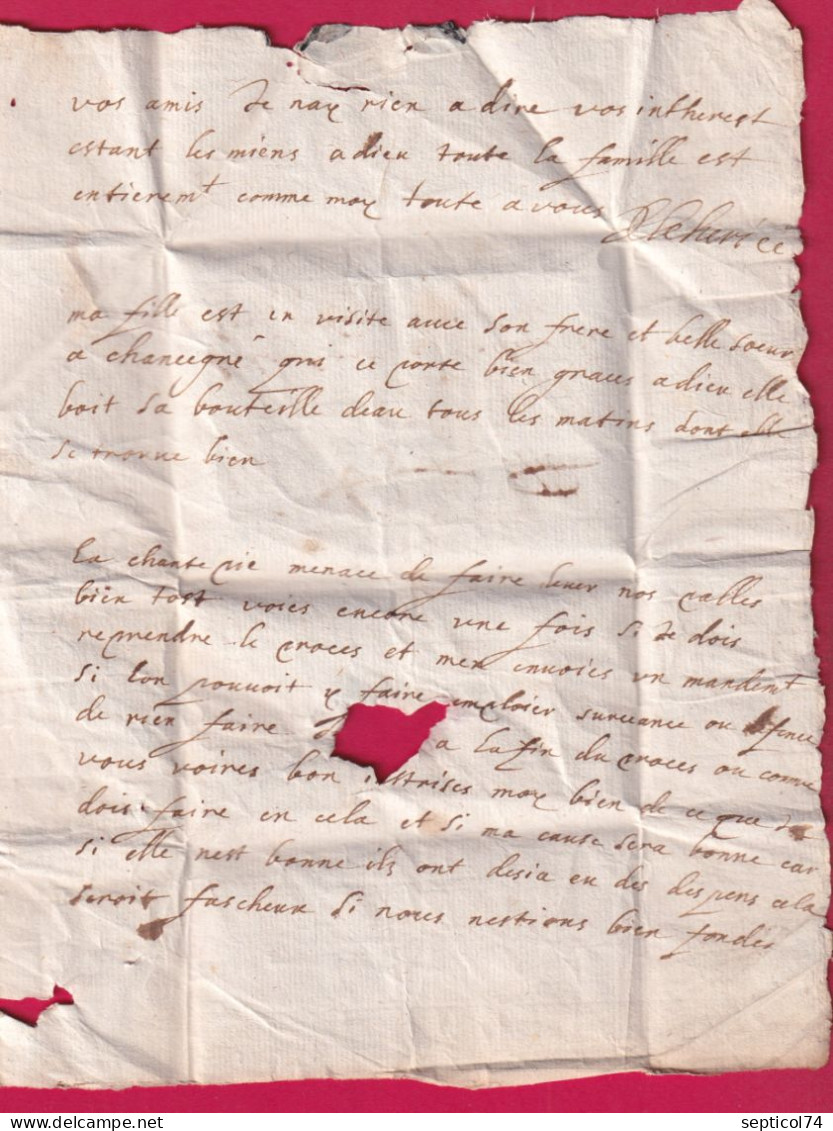 vos amis Je nay rien a dire vos intherest
estant les miens adieu toute la famille est
entierem^t comme moy toute a vous
ma fille est en visite avec son frere et belle soeur
a chancegné qui ce porte bien graces a dieu elle
boit sa bouteille deau tous les matins dont elle
se trouve bien
La chante pie menace de faire lever nos palles
bien tost voies encore une fois si Je dois
reprendre le proces et men envoies un mandem^t
si lon pouvoit y faire emploier surceance ou defence
de rien faire a la fin du proces ou comme
vous voires bon moy bien de ce que Je
dois faire en cela et si ma cause sera bonne car
si elle nest bonne ils ont desia eu des despens cela
seroit fascheux si nous nestions bien fondés
www.delcampe.net
septicol74